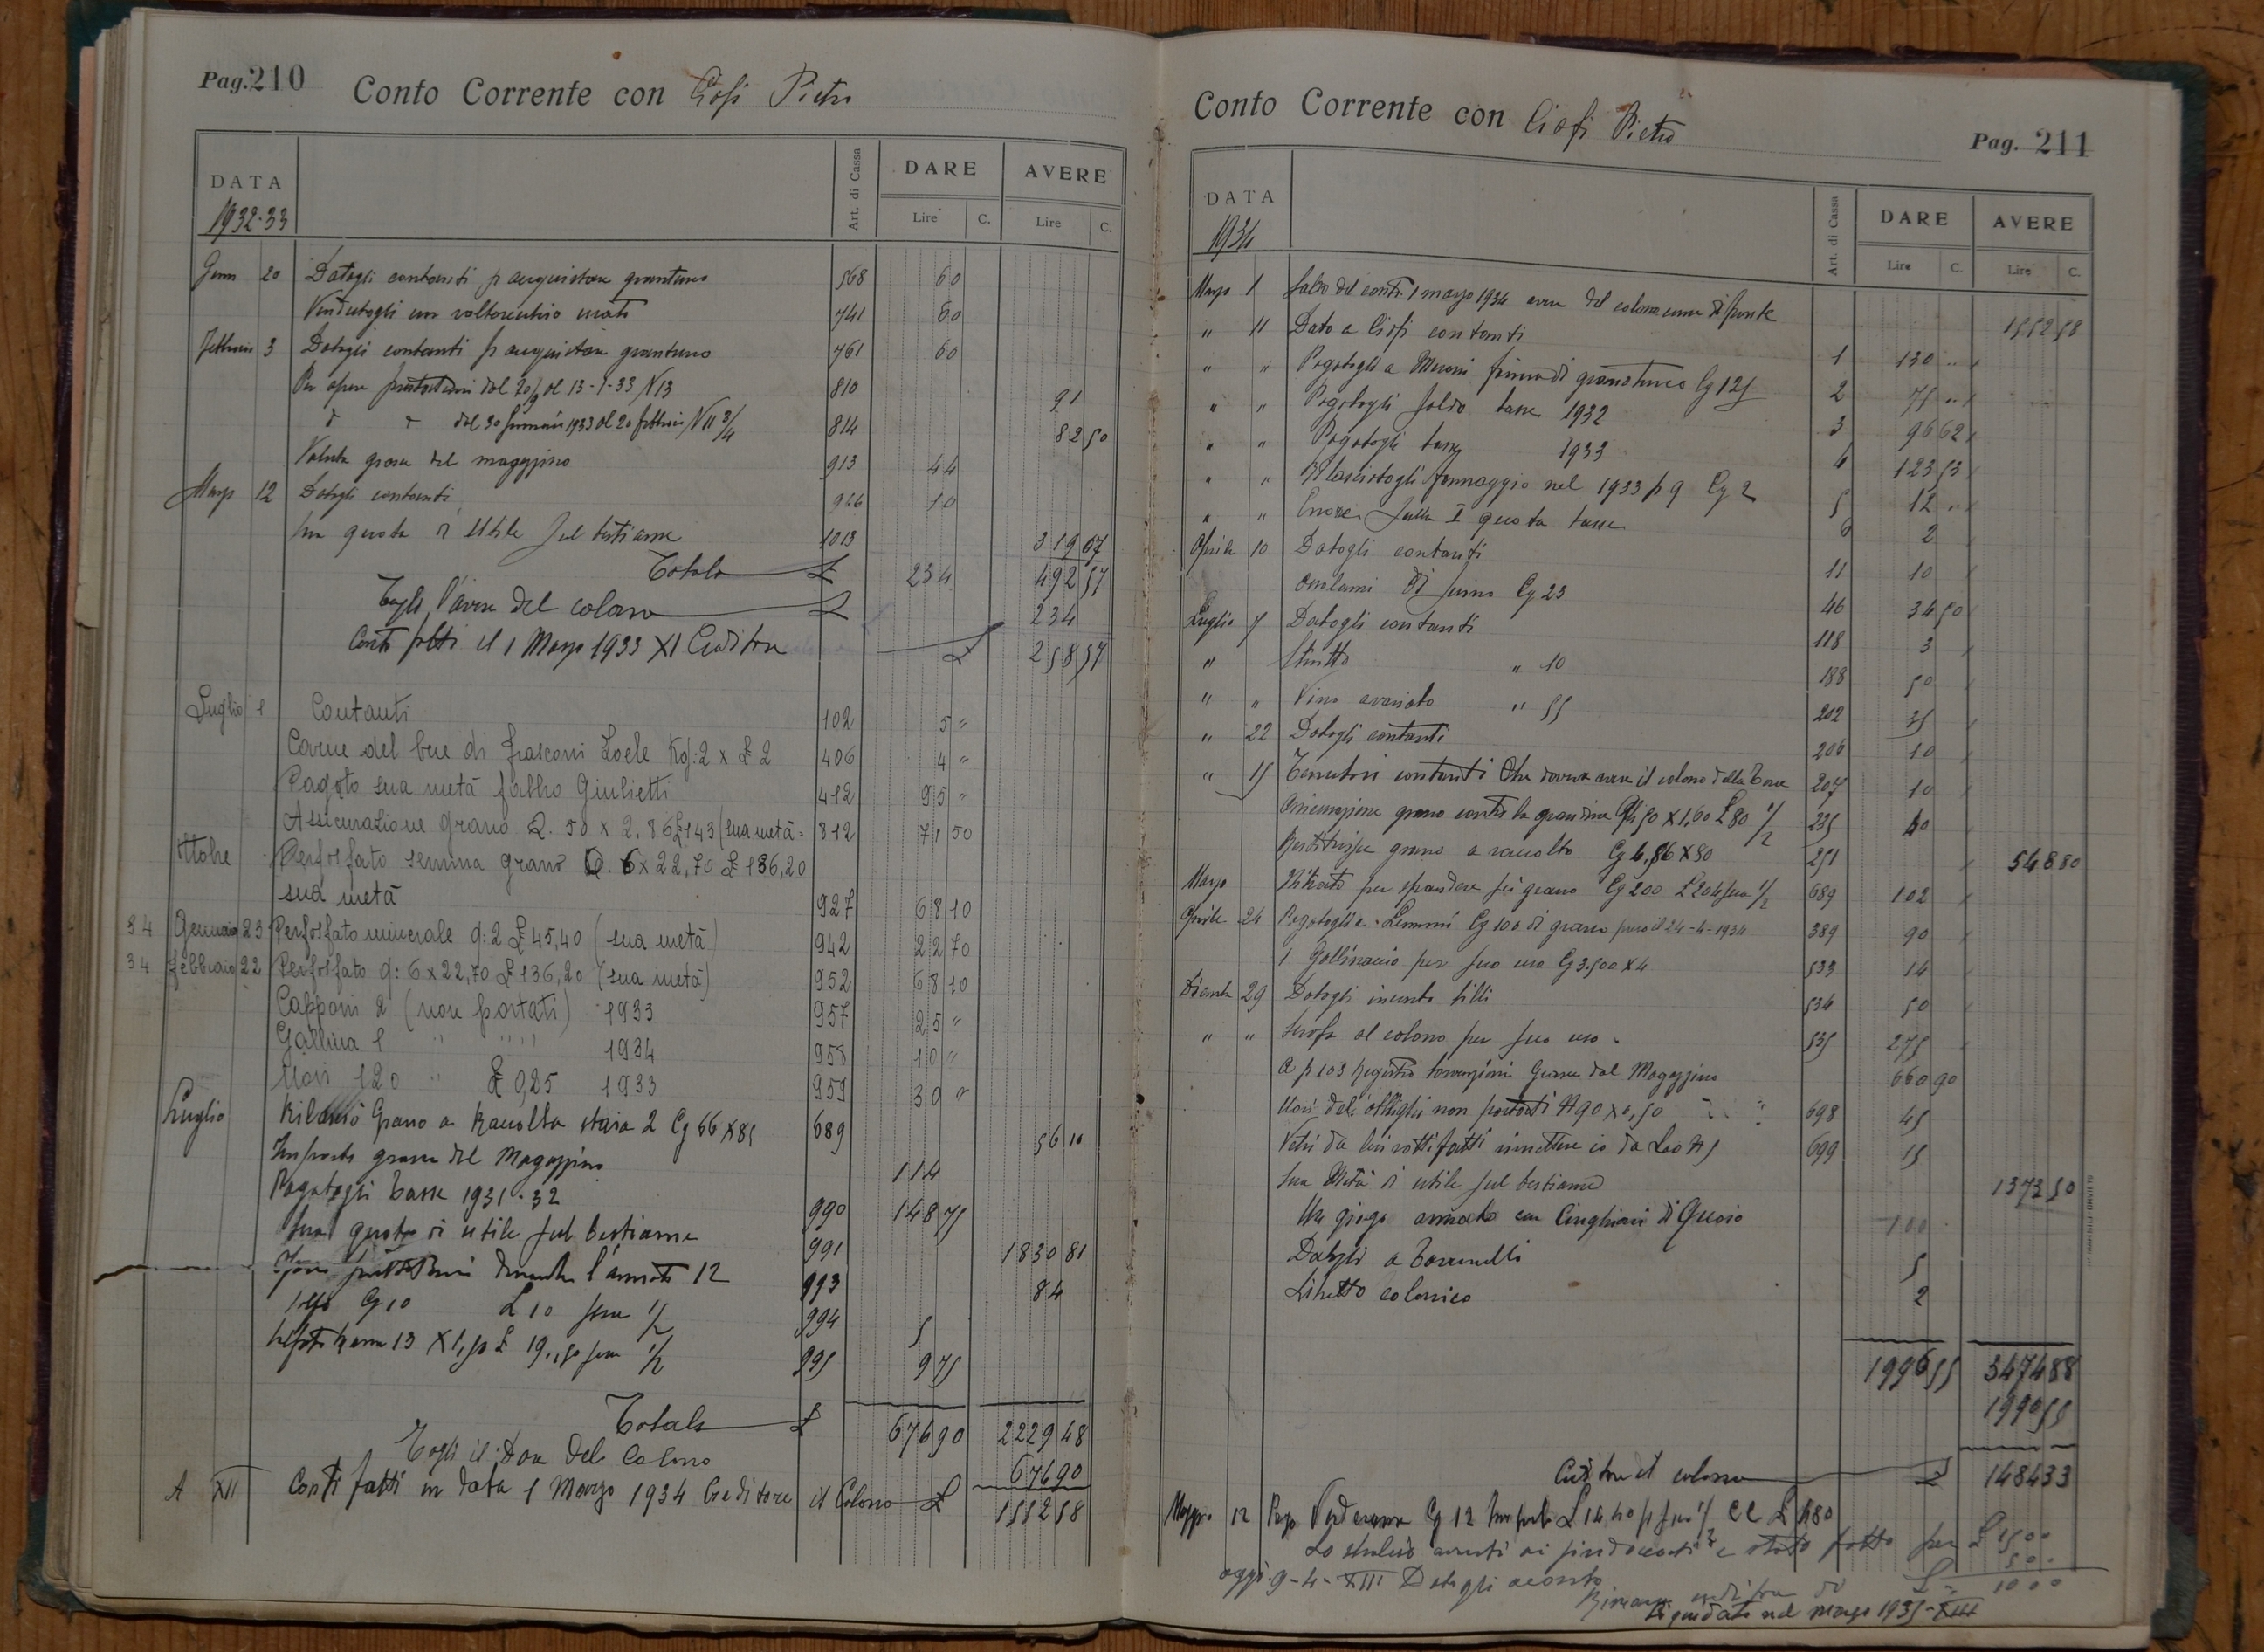 Pag. 210
Conto Corrente con Ciofi Pietro
DATA
Art. di Cassa
DARE
AVERE
Lire C. Lire C.
1932-33
Genn 20 Datogli contanti p acquistare granturco 568 60
Vendutogli un voltorecchio usato 741 60
Febbraio 3 Datogli contanti p acquistare granturco 761 60
Per opere prestatemi dal 20/9 al 13-1-33 N 13 810 91
dal 30 Gennaio 1933 al 20 febbraio N 11 3/4 814 82 50
Valuta grasce del magazzino 913 44
Marzo 12 Datogli contanti 946 10
Sua quota di Utile sul bestiame 1013 319 07
Totale £ 234 492 57
Togli l'avere del colono £ 234
Conti fatti il 1 Marzo 1933 XI Creditore £ 258 57
Luglio 1 Contanti 102 5 "
Carne del bue di Frasconi Loele Kg: 2 x £ 2 406 4 "
Pagato sua metà fabbro Giulietti 412 95 "
Assicurazione grano Q. 50 x 2.86 £ 143 (sua metà = 812 71 50
Ottobre Perfosfato semina grano Q. 6 x 22,70 £ 136,20
sua metà 927 68 10
34 Gennaio 23 Perfosfato minerale q: 2 £ 45,40 (sua metà) 942 22 70
34 febbraio 22 Perfosfato q: 6 x 22,70 £ 136,20 (sua metà) 952 68 10
Capponi 2 (non portati) 1933 957 25 "
Gallina 1 " " " 1934 958 10 "
Uova 120 " £ 0,25 1933 959 30 "
Luglio Rilasciò Grano a Raccolta staia 2 Cg 66 x 85 689 56 10
Importo grasce del Magazzino 114
Pagatogli Tasse 1931-32 990 148 75
Sua quota di utile sul bestiame 991 1830 81
Opere prestatemi durante l'annata 12 993 84
Zolfo Cg 10 £ 10 sua 1/2 994 5
13 x 1,50 £ 19,50 sua 1/2 995 9 75
Totale £ 676 90 2229 48
Togli il Dare del Colono 676 90
A XII Conti fatti in data 1 Marzo 1934 Creditore il Colono £ 1552 58
Conto Corrente con Ciofi Pietro
Pag. 211
DATA
Art. di Cassa
DARE
AVERE
Lire C. Lire C.
1934
Marzo 1 Saldo dei conti 1 marzo 1934 avere del colono come di fronte 1552 58
" 11 Dato a Ciofi contanti 1 130 "
" " Pagatogli a Meroni farina di granoturco Cg 125 2 75 "
" " Pagatogli saldo tasse 1932 3 96 62
" " Pagatogli tasse 1933 4 123 53
" " Rilasciatogli formaggio nel 1933 p 9 Cg 2 5 12 "
" " Errore sulla I quota tasse 6 2
Aprile 10 Datogli contanti 11 10
di fieno Cg 23 46 34 50
Luglio 7 Datogli contanti 118 3
" Strutto " 10 188 50
" " Vino avariato " 55 202 35
" 22 Datogli contanti 206 10
" 15 contanti che doveva avere il colono della Torre 207 10
Assicurazione grano contro la grandine Qli 50 x 1,60 £ 80 1/2 235 40
Restituisce grano a raccolto Cg 6,86 x 80 251 548 80
Marzo Nitrato per spandere sui grano Cg 200 £ 204 sua 1/2 689 102
Aprile 24 Pagatogli a Lemmi Cg 100 di grano preso il 24-4-1934 389 90
1 Gallinaccio per suo uso Cg 3.500 x 4 533 14
Dicembre 29 Datogli 534 50
" " Scrofa al colono per suo uso 535 275
A p 103 Registro Grasce dal Magazzino 660 90
Uova dei obblighi non portati N 90 x 0,50 698 45
Vetri da lui rotti fatti rimettere io da Leo N 5 699 15
Sua Metà di utile sul bestiame 1373 50
Un giogo armato con Cinghiami di Cuoio 100
Datogli a 5
Libretto colonico 2
1996 55 3474 88
1990 55
Creditore il colono £ 1484 33
Maggio 12 Cg 12 Importo £ 14,40 p sua 1/2 £ 4 80
Lo stralcio avanti ai sindacati è stato fatto per £ 1500
oggi 9-4-XIII Datogli acconto 500
Rimane creditore di £ 1000
Liquidato nel marzo 1935-XIII